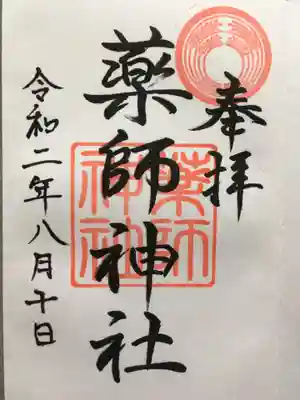 奉拝
薬師神社
薬師神社
令和二年八月十日